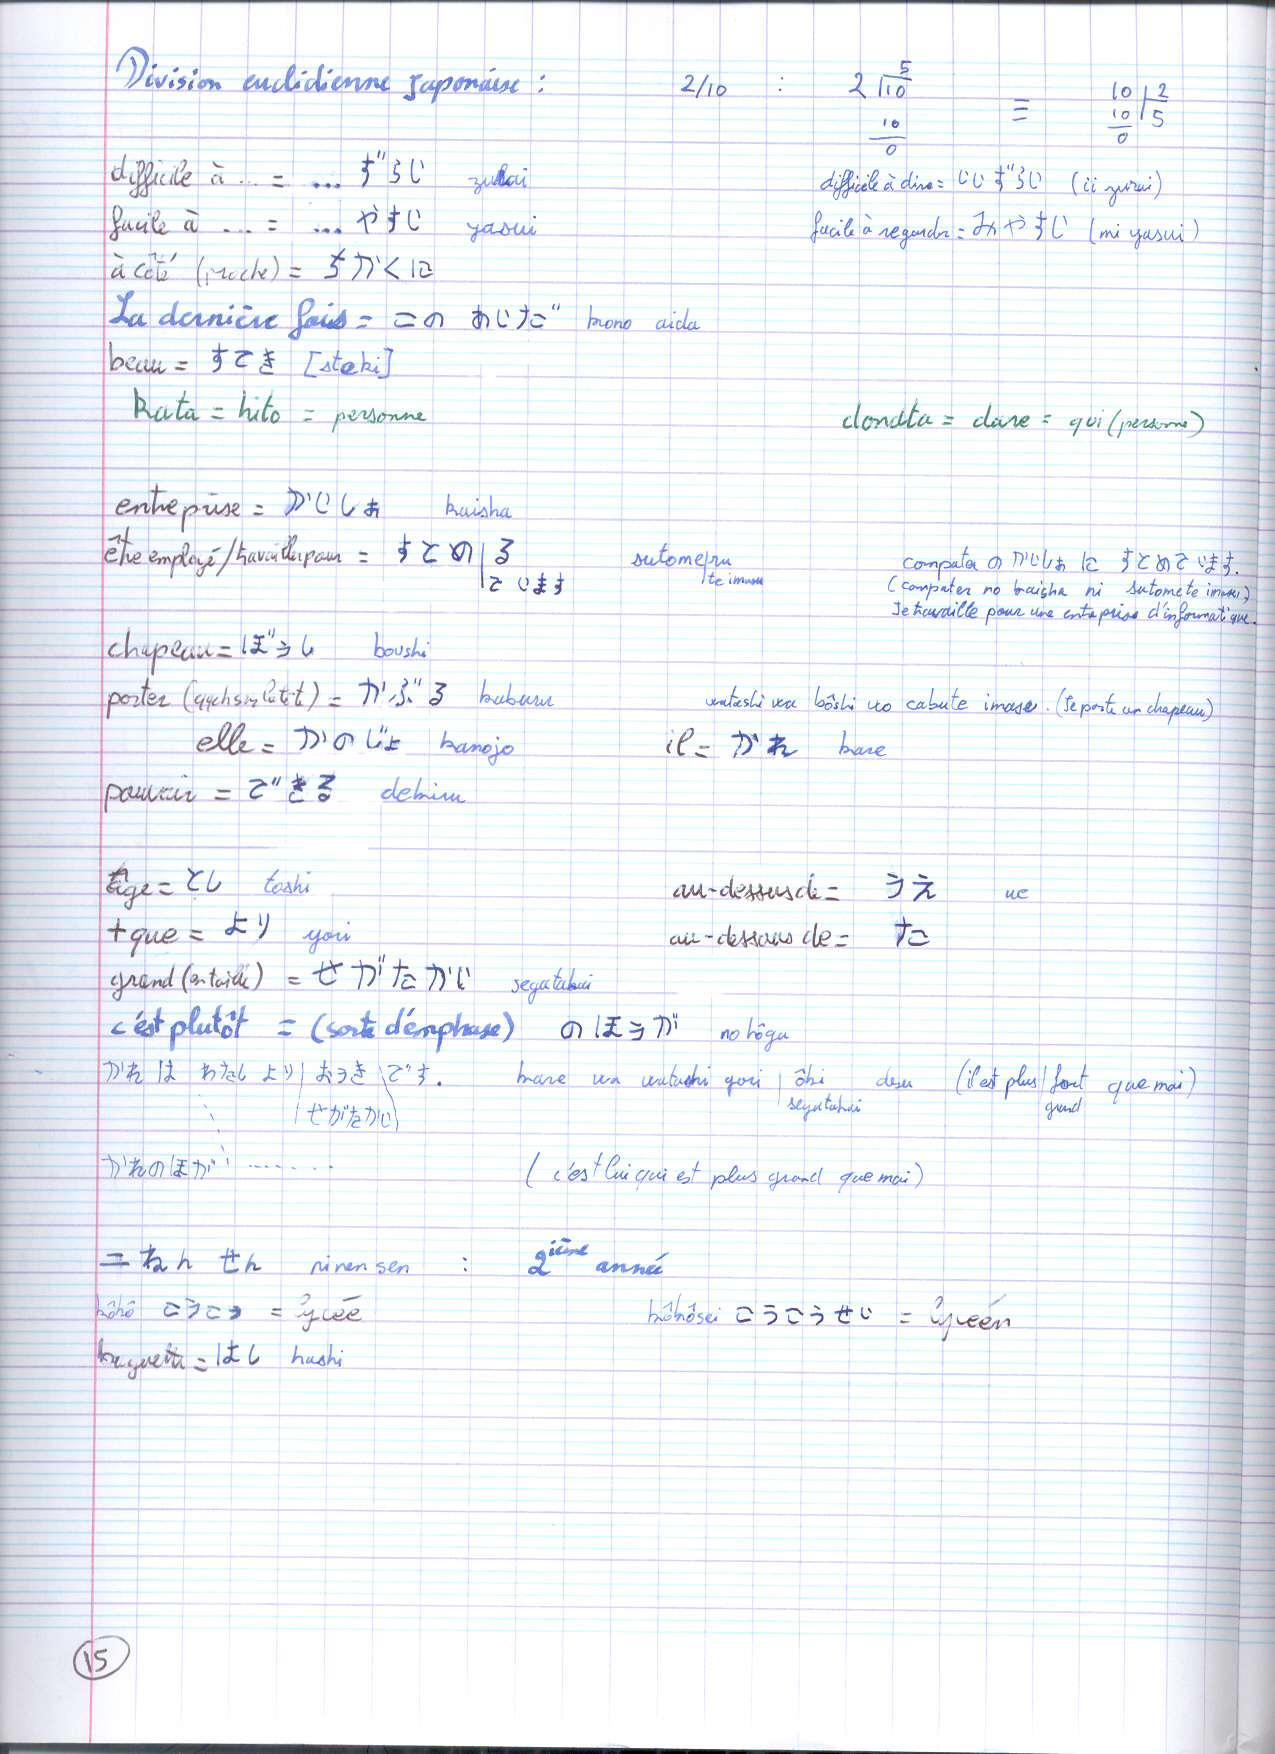 Division euclidienne japonaise : 2/10 : 2 10 5 10 0 ≡ 10 2 10 5 0
difficile à ... = ... ずらい zurai difficile à dire = いいずらい (ii zurai)
facile à ... = ... やすい yasui facile à regarder = みやすい (mi yasui)
à côté (proche) = ちかくに
La dernière fois = この あいだ kono aida
beau = すてき [steki]
kata = hito = personne dondta = dare = qui (personne)
entreprise = かいしゃ kaisha
être employé/travailler pour = すとめ|る sutome|ru computer の かいしゃ に すとめています.
ています te imasu (computer no kaisha ni sutomete imasu)
Je travaille pour une entreprise d'informatique.
chapeau = ぼうし boushi
porter (qqch sur la tête) = かぶる kaburu watashi wa bôshi wo cabute imasu. (Je porte un chapeau)
elle = かのじょ kanojo il = かれ kare
pouvoir = できる dekiru
âge = とし toshi au-dessus de = うえ ue
+ que = より yori au-dessous de = した
grand (en taille) = せがたかい segatakai
c'est plutôt = (sorte d'emphase) のほうが no hôga
かれ は わたし より | おうき | です. kare wa watashi yori | ôki desu (il est plus | fort que moi)
せがたかい segatakai grand
かれのほが ....... (c'est lui qui est plus grand que moi)
二ねん せん ninen sen : 2ième année
kôkô こうこう = lycée kôkôsei こうこうせい = lycéen
baguette = はし hashi
15